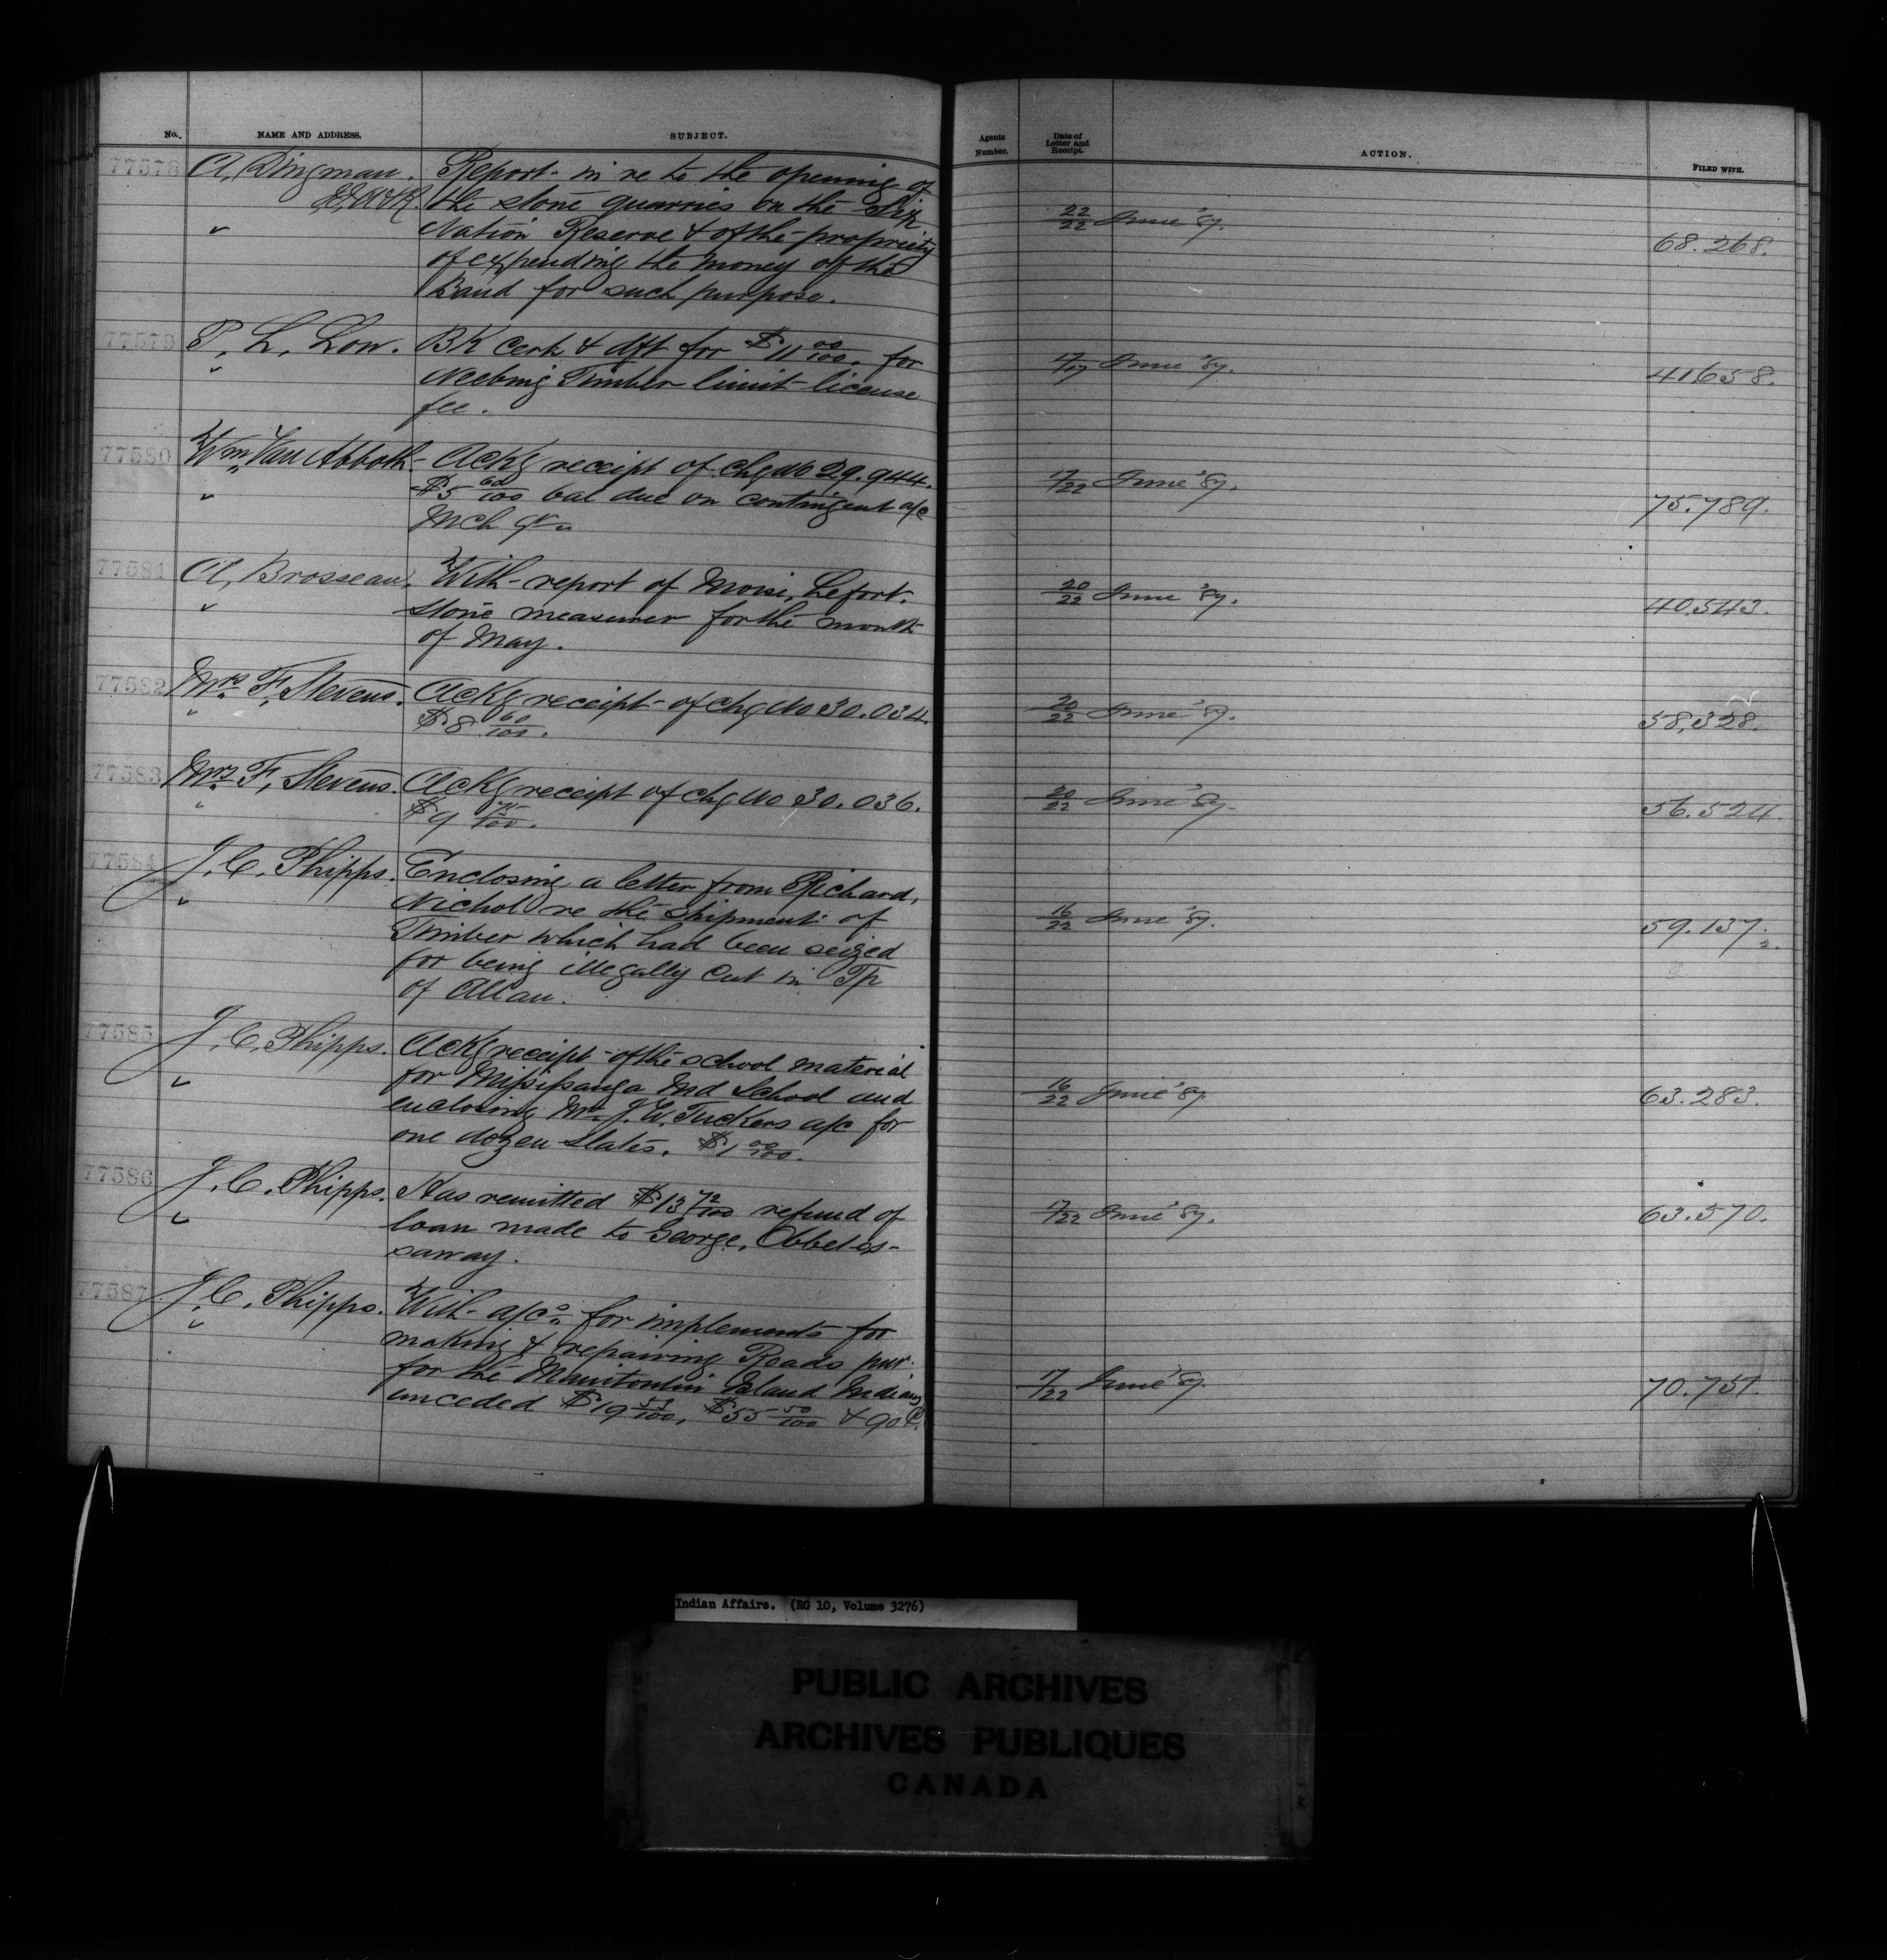 No. NAME AND ADDRESS. SUBJECT.
Agents Number. Date of Letter and Receipt. ACTION. FILED WITH.
77578 A. Dingman. Report in re to the opening of
the stone quarries on the Six
Nation Reserve & of the propriety
of expending the money of the
Band for such purpose.
22/22 June '87. 68.268.
77579 P. L. Low. BK Cert & dft for $11 00/100. for
Neebing Timber limit license
fee.
17/17 June '87. 41658.
77580 Wm Van Abbott Ackg receipt of chq No 29.944.
$5 60/100 bal due on contingent a/c
Mch qr
17/22 June '87. 75.789.
77581 A. Brosseau. With report of Moise, Lefort.
stone measurer for the month
of May.
20/22 June '87. 40,543.
77582 Mrs F. Stevens. Ackg receipt of chq No 30.034.
$8 60/100.
20/22 June '87. 58,328.
77583 Mrs F. Stevens. Ackg receipt of chq No 30.036.
$9 75/100.
20/22 June '87. 56.524.
77584 J. C. Phipps. Enclosing a letter from Richard,
Nichol re the shipment of
Timber which had been seized
for being illegally cut in Tp
of Allan.
16/22 June '87. 59.137. 2.
77585 J. C. Phipps. Ackg receipt of the school material
for Missisauga Ind School and
enclosing Mr J. W. Tuckers a/c for
one dozen slates. $1 00/100.
16/22 June '87 63.283.
77586 J. C. Phipps. Has remitted $13 72/100 refund of
loan made to George, Obbetos-
saway.
17/22 June '87. 63.570.
77587 J. C. Phipps. With a/cs for implements for
making & repairing Roads pur.
for the Manitoulin Island Indians
unceded $19 51/100, $55 50/100 & 90 C.
17/22 June '87. 70.751.
Indian Affairs. (RG 10, Volume 3276)
PUBLIC ARCHIVES
ARCHIVES PUBLIQUES
CANADA